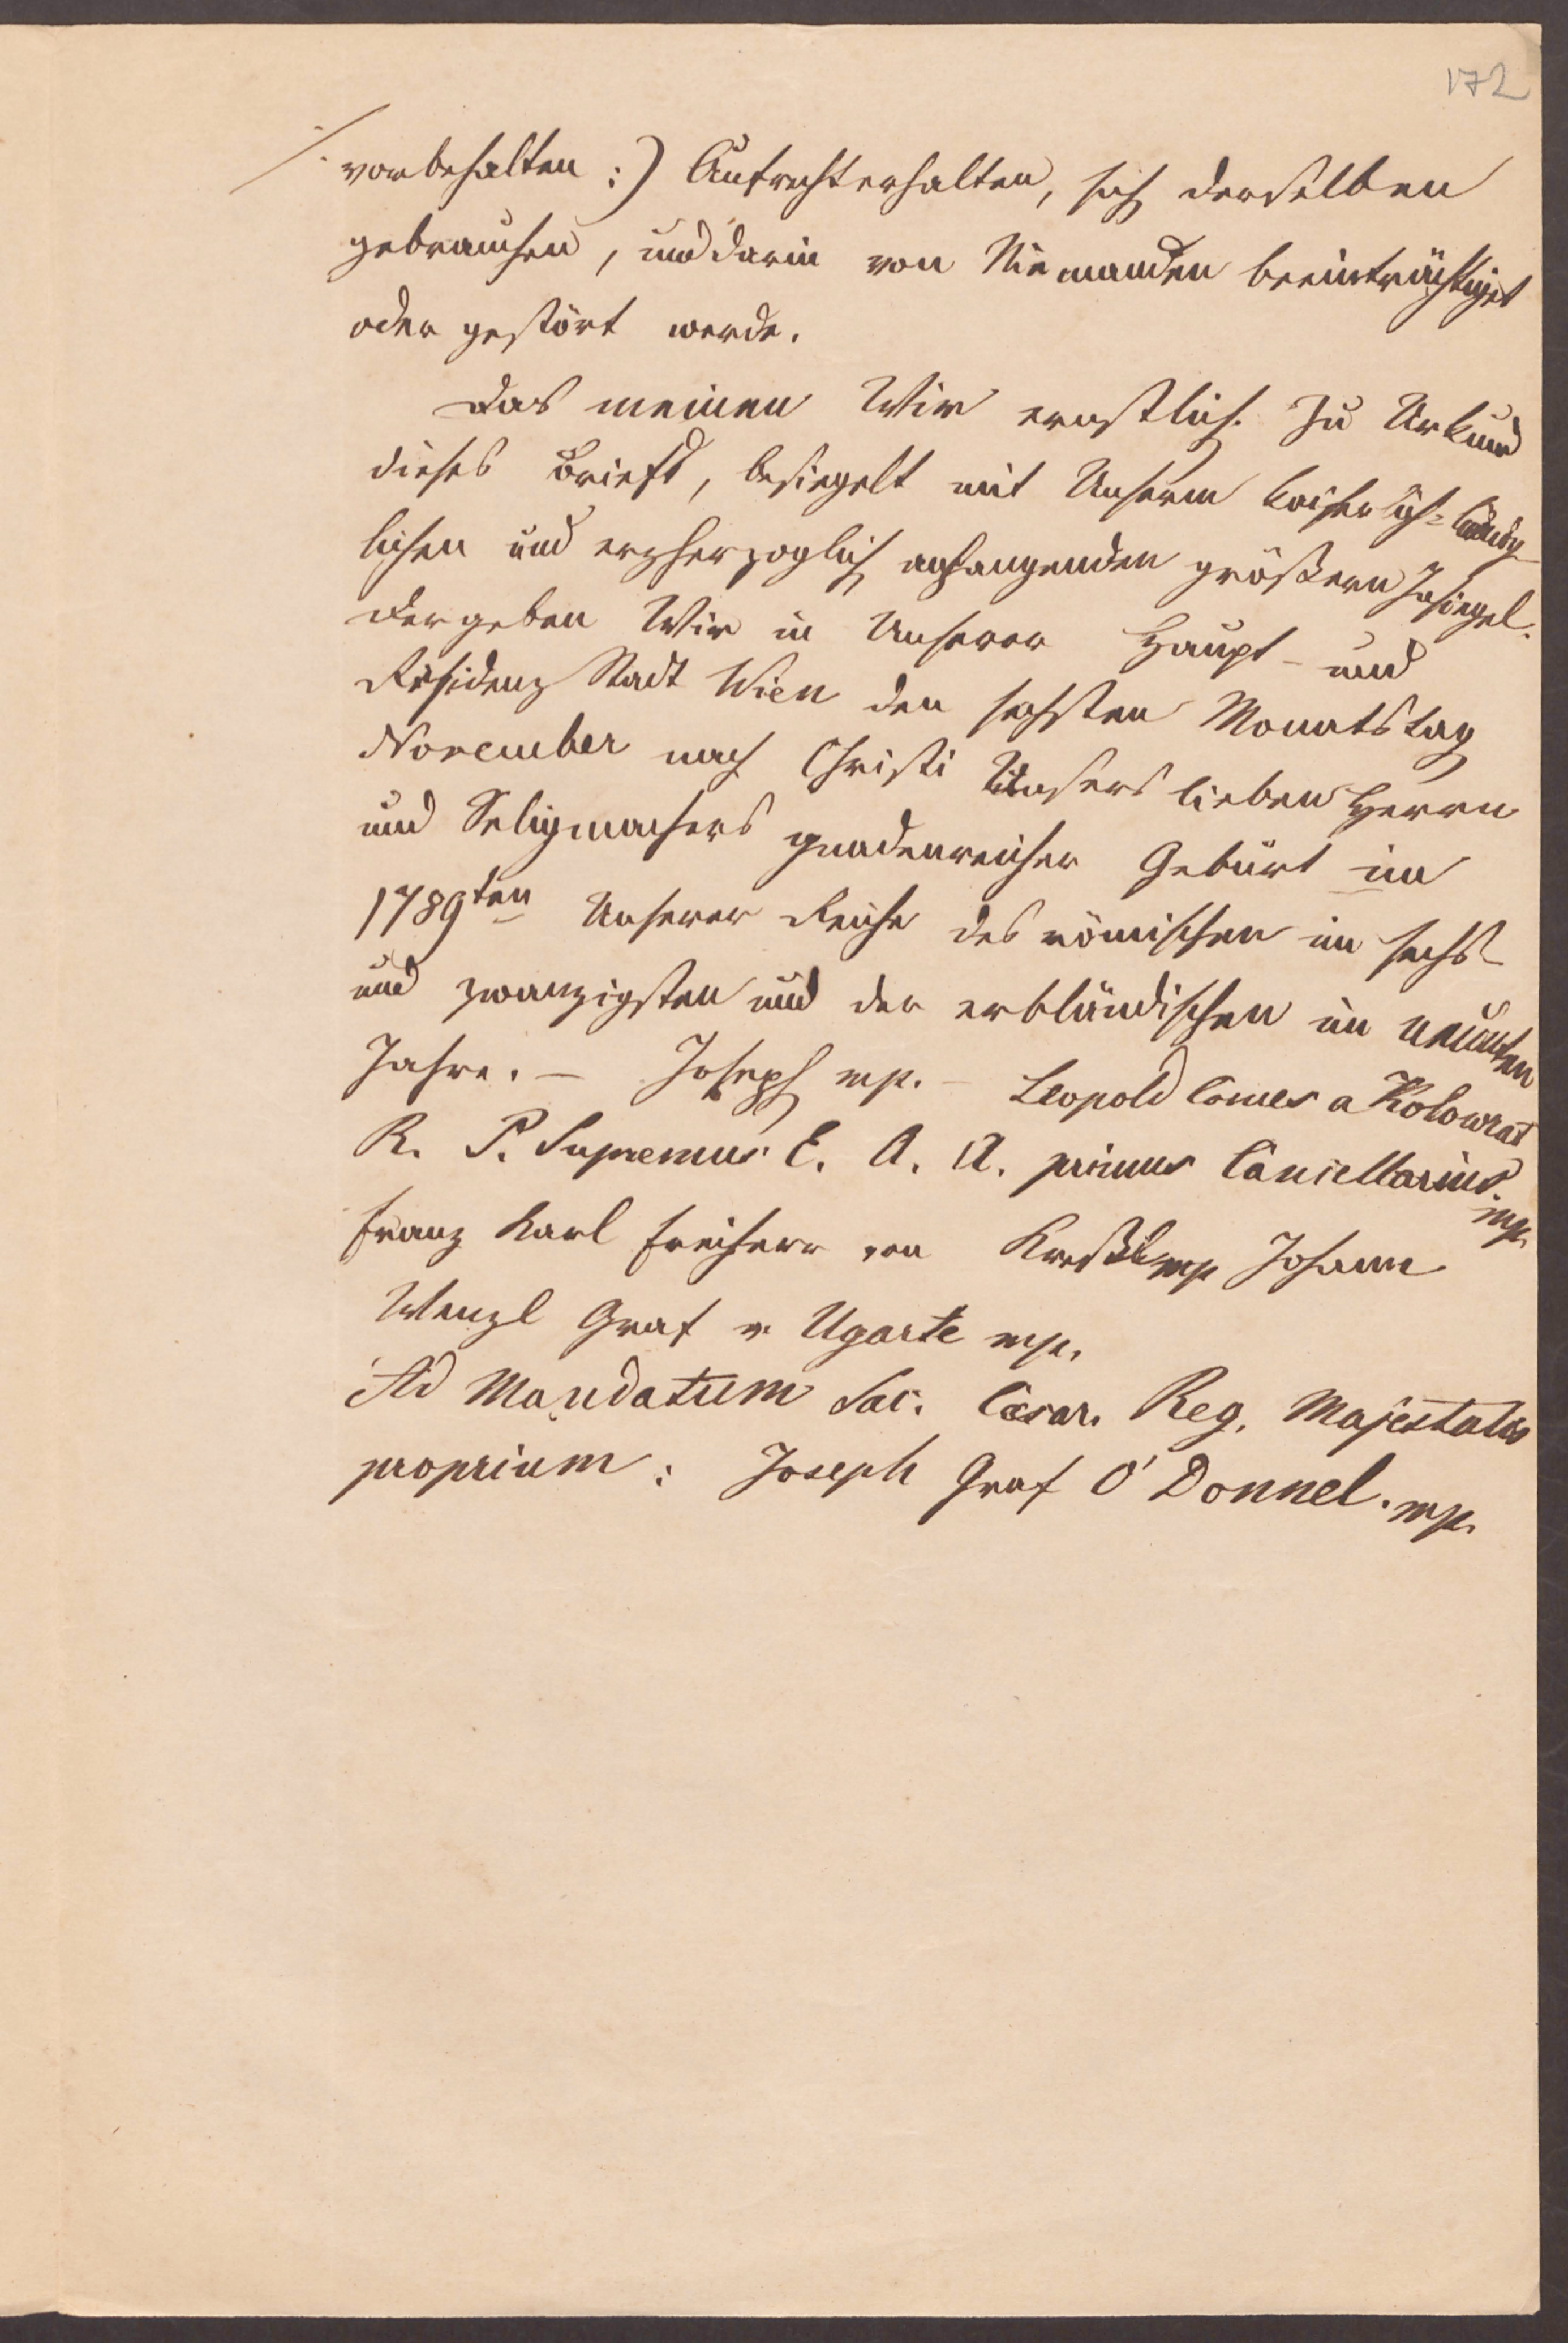 172
vorbehalten :) Aufrechterhalten, sich derselben
gebrauchen, und darin von Niemanden beeinträchtiget
oder gestört werde.
Das meinen Wir ernstlich. Zu Urkund
dieses Briefs, besiegelt mit Unserm kaiserlich-königlichen
und erzherzoglich anhangenden größern Insiegel.
Der geben Wir in Unserer Haupt- und
Residenz Stadt Wien den sechsten Monatstag
November nach Christi Unsers lieben Herrn
und Seligmachers gnadenreicher Geburt im
1789ten Unserer Reiche des römischen im sechs
und zwanzigsten und der erbländischen im neunten
Jahre. – Joseph mp. – Leopold Comes a Kolowrat
R. B. Supremus E. A. A. primus Cancellarius. mp.
Franz Karl Freiherr von Kreßl mp Johann
Wenzl Graf v. Ugarte mp.
Ad Mandatum Sac. Cæsar. Reg. Majestatis
proprium: Joseph Graf O'Donnel. mp.